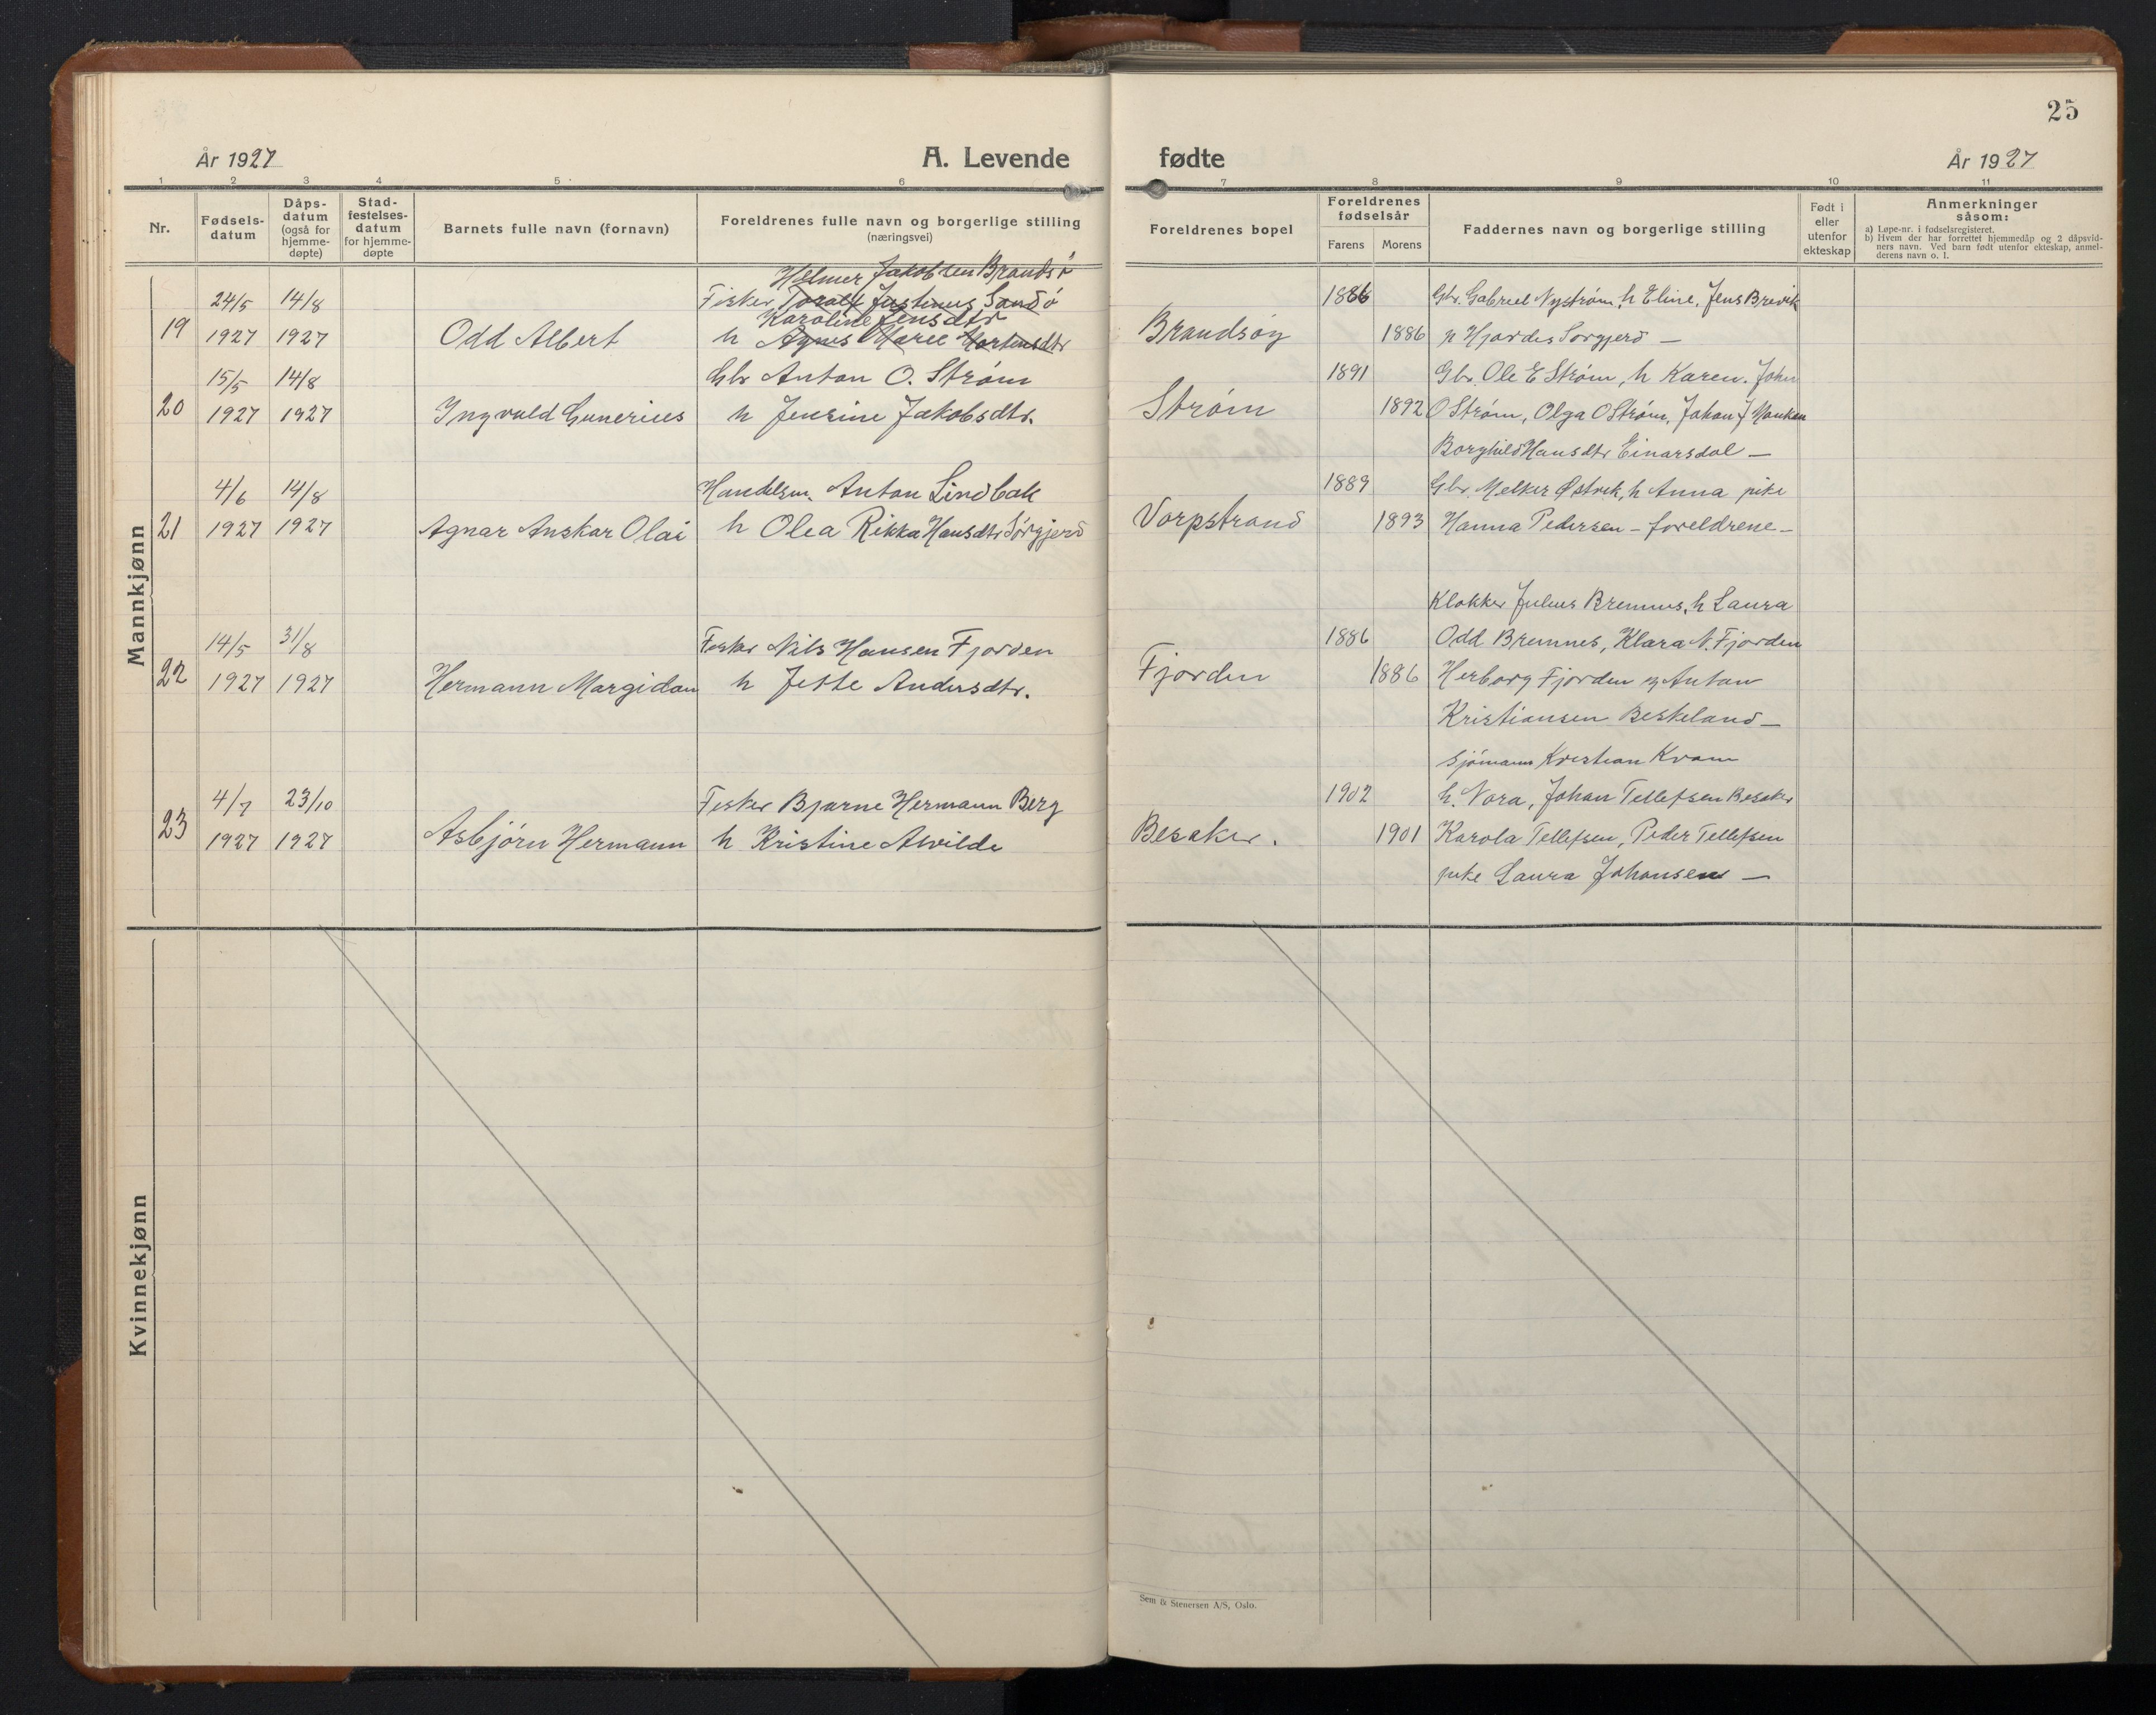 25
År 1927
A. Levende
fødte
År 1927
1 2 3 4 5 6 7 8 9 10 11
Nr.
Fødsels-
datum
Dåps-
datum
(også for
hjemme-
døpte)
Stad-
festelses-
datum
for hjemme-
døpte
Barnets fulle navn (fornavn)
Foreldrenes fulle navn og borgerlige stilling
(næringsvei)
Foreldrenes bopel
Foreldrenes
fødselsår
Farens Morens
Faddernes navn og borgerlige stilling
Født i
eller
utenfor
ekteskap
Anmerkninger
såsom:
a) Løpe-nr. i fødselsregisteret.
b) Hvem der har forrettet hjemmedåp og 2 dåpsvid-
ners navn. Ved barn født utenfor ekteskap, anmel-
derens navn o. l.
Mannkjønn
Helmer Jakobsen Brandsø
24/5 14/8 Fisker Toralf Justinus Sandø 1886 Gbr. Gabriel Nystrøm, h Eline, Jens Brevik
Karoline Jensdtr
19 1927 1927 Odd Albert h Agnes Marie Martensdtr Brandsøy 1886 p Hjørdis Sørgjerd —
15/5 14/8 Gbr Anton O. Strøm 1891 Gbr. Ole E Strøm, h Karen. John
20 1927 1927 Ingvald Gunerius h Jensine Jakobsdtr. Strøm 1892 O Strøm, Olga O Strøm, Johan J
Borghild Hansdtr Einarsdal —
4/6 14/8 Handelsm. Anton Lindbak 1889 Gbr. Melker Østvik, h Anna pike
21 1927 1927 Agnar Anskar Olai h Olea Rikka Hansdtr Sørgjerd Vorpstrand 1893 Hanna Pedersen – foreldrene –
Klokker Julius Bremnes, h Laura
14/5 31/8 Fisker Nils Hansen Fjorden 1886 Odd Bremnes, Klara N. Fjorden
22 1927 1927 Hermann Margidon h Jette Andersdtr. Fjorden 1886 Herborg Fjorden og Anton
Kristiansen Beskeland —
Sjømann Kristian Kvam
4/7 23/10 Fisker Bjarne Hermann Berg 1902 h. Nora, Johan Tellefsen Besaker
23 1927 1927 Asbjørn Hermann h Kristine Alvilde Besaker. 1901 Karola Tellefsen, Peder Tellefsen
pike Laura Johansen —
Kvinnekjønn
Sem & Stenersen A/S, Oslo.